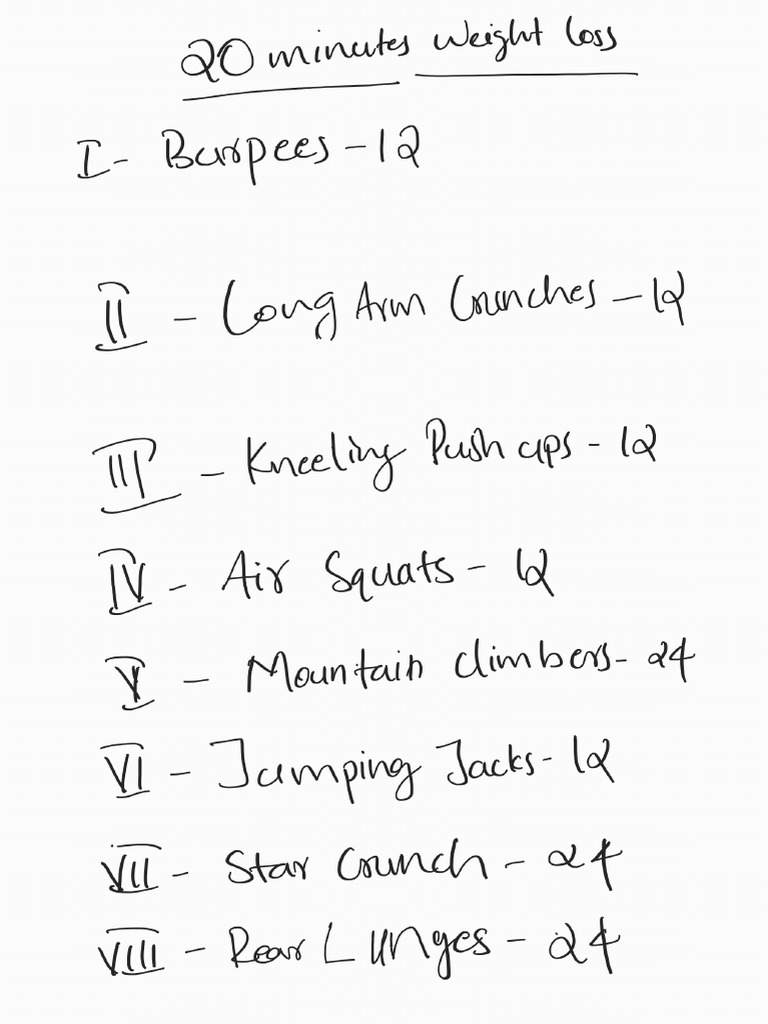 20 minutes weight loss
I - Burpees - 12
II - Long Arm Crunches - 12
III - Kneeling Push ups - 12
IV - Air Squats - 12
V - Mountain climbers - 24
VI - Jumping Jacks - 12
VII - Star Crunch - 24
VIII - Rear Lunges - 24